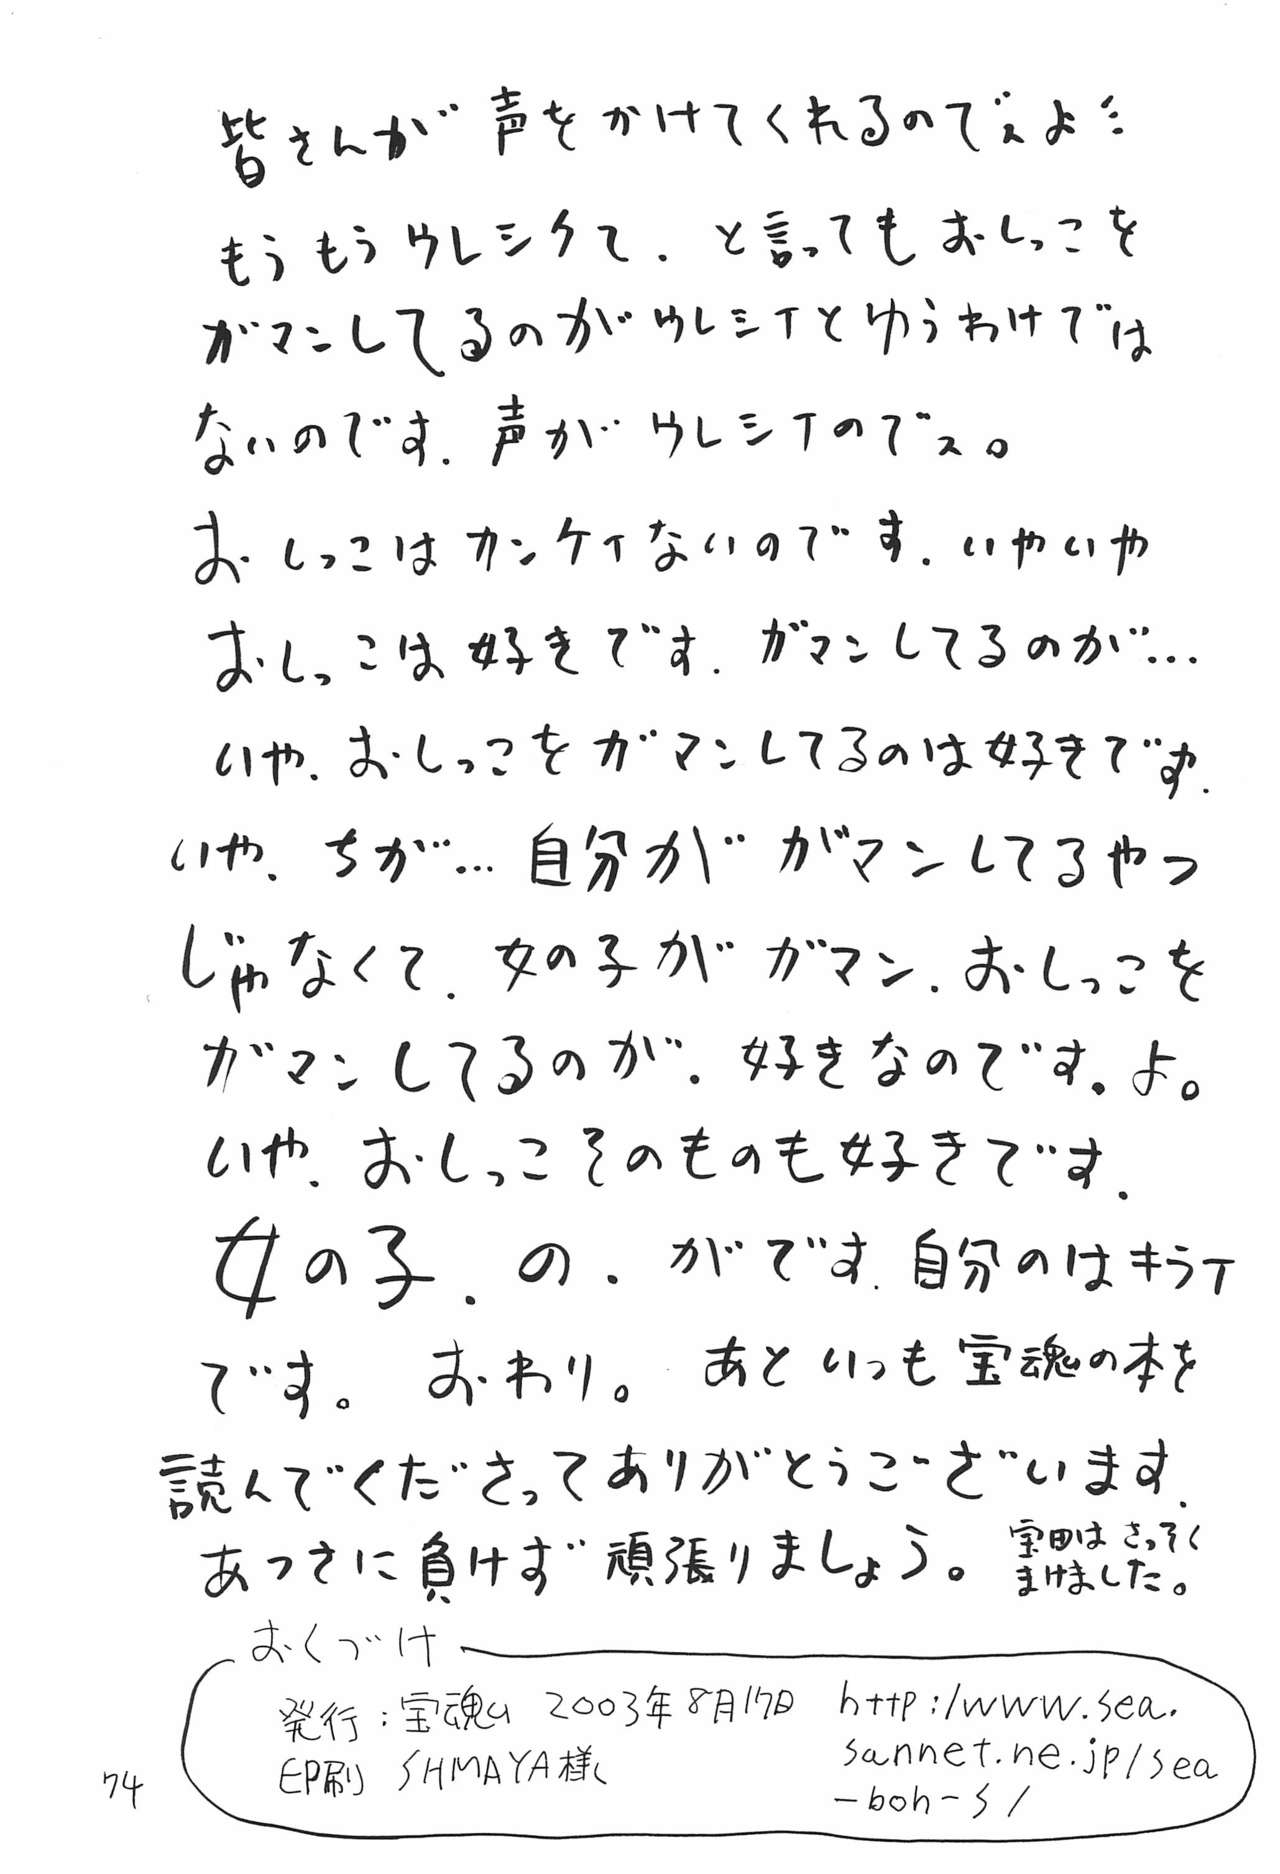 皆さんが声をかけてくれるのでスよミ
もうもうウレシクて.と言ってもおしっこを
ガマンしてるのがウレシイとゆうわけでは
ないのです.声がウレシイのでス。
おしっこはカンケイないのです.いやいや
おしっこは好きです.ガマンしてるのが…
いや.おしっこをガマンしてるのは好きです.
いや.ちが…自分がガマンしてるやつ
じゃなくて.女の子がガマン.おしっこを
ガマンしてるのが.好きなのです.よ。
いや.おしっこそのものも好きです.
女の子.の.がです.自分のはキライ
です。おわり。あといつも宝魂の本を
読んでくださってありがとうございます.
あつさに負けず頑張りましょう。
宝田はさっそく
まけました。
おくづけ
発行:宝魂 2003年8月17日
印刷 SHMAYA様
http:/www.sea.
sannet.ne.jp/sea
-boh-s/
74